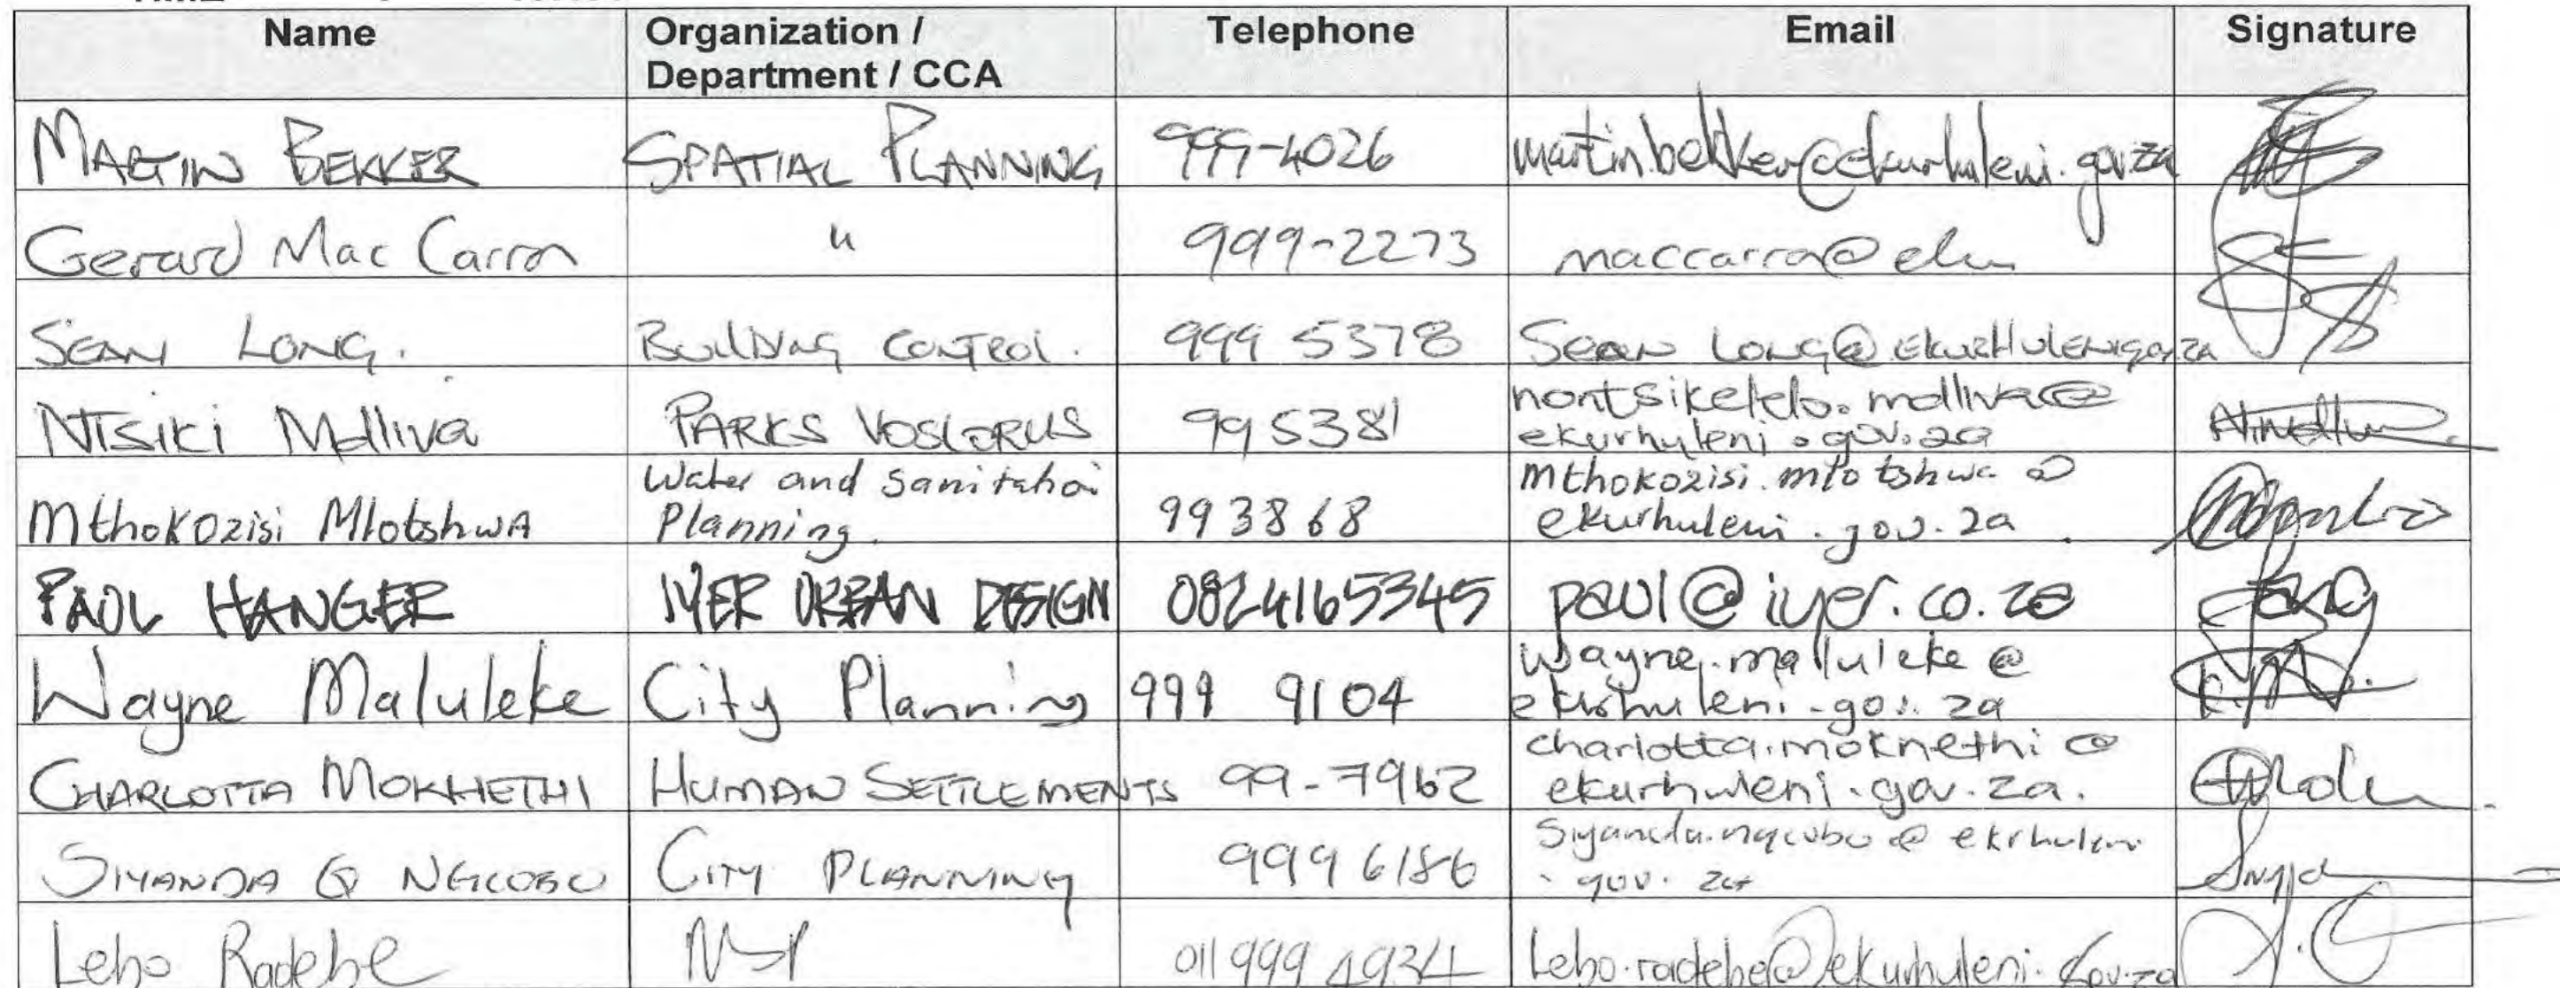 Name Organization / Telephone Email Signature
Department / CCA
MARTIN BEKKER SPATIAL PLANNING 999-4026 martin.bekker@ekurhuleni.gov.za
Gerard Mac Carron " 999-2273 maccarro@eku
SEAN LONG. BuilDing CONTROL. 999 5378 Sean Long@EkurHulenigov.za
NTSIKI Mdliva PARKS VOSLORUS 995381 nontsikelelo.mdliva@
ekurhuleni.gov.za
Mthokozisi MlotshwA Water and Sanitation 993868 Mthokozisi.mlotshwa@
Planning. ekurhuleni.gov.za
PAUL HANGER IYER URBAN DESIGN 0824165345 paul@iyer.co.za
Wayne Maluleke City Planning 999 9104 Wayne.malluleke@
ekurhuleni.gov.za
CHARLOTTA MOKHETHI HUMAN SETTLEMENTS 99-7962 charlotta.mokhethi@
ekurhuleni.gov.za.
SIYANDA G NGCOBO CITY PLANNING 999 6186 Siyanda.ngcobo@ekrhuleni
.gov.za
Lebo Radebe 011 999 4934 Lebo.radebe@ekurhuleni.Gov.za